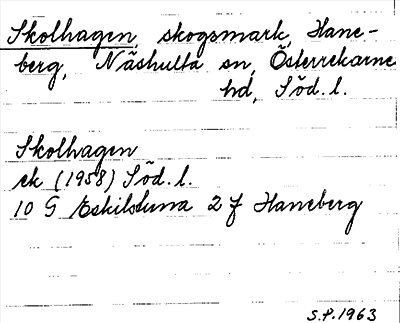 Skolhagen, skogsmark, Hane-
berg, Näshulta sn, Österrekarne
hd, Söd. l.
Skolhagen
ek (1958) Söd. l.
10 G Eskilstuna 2 f Haneberg
S.P. 1963